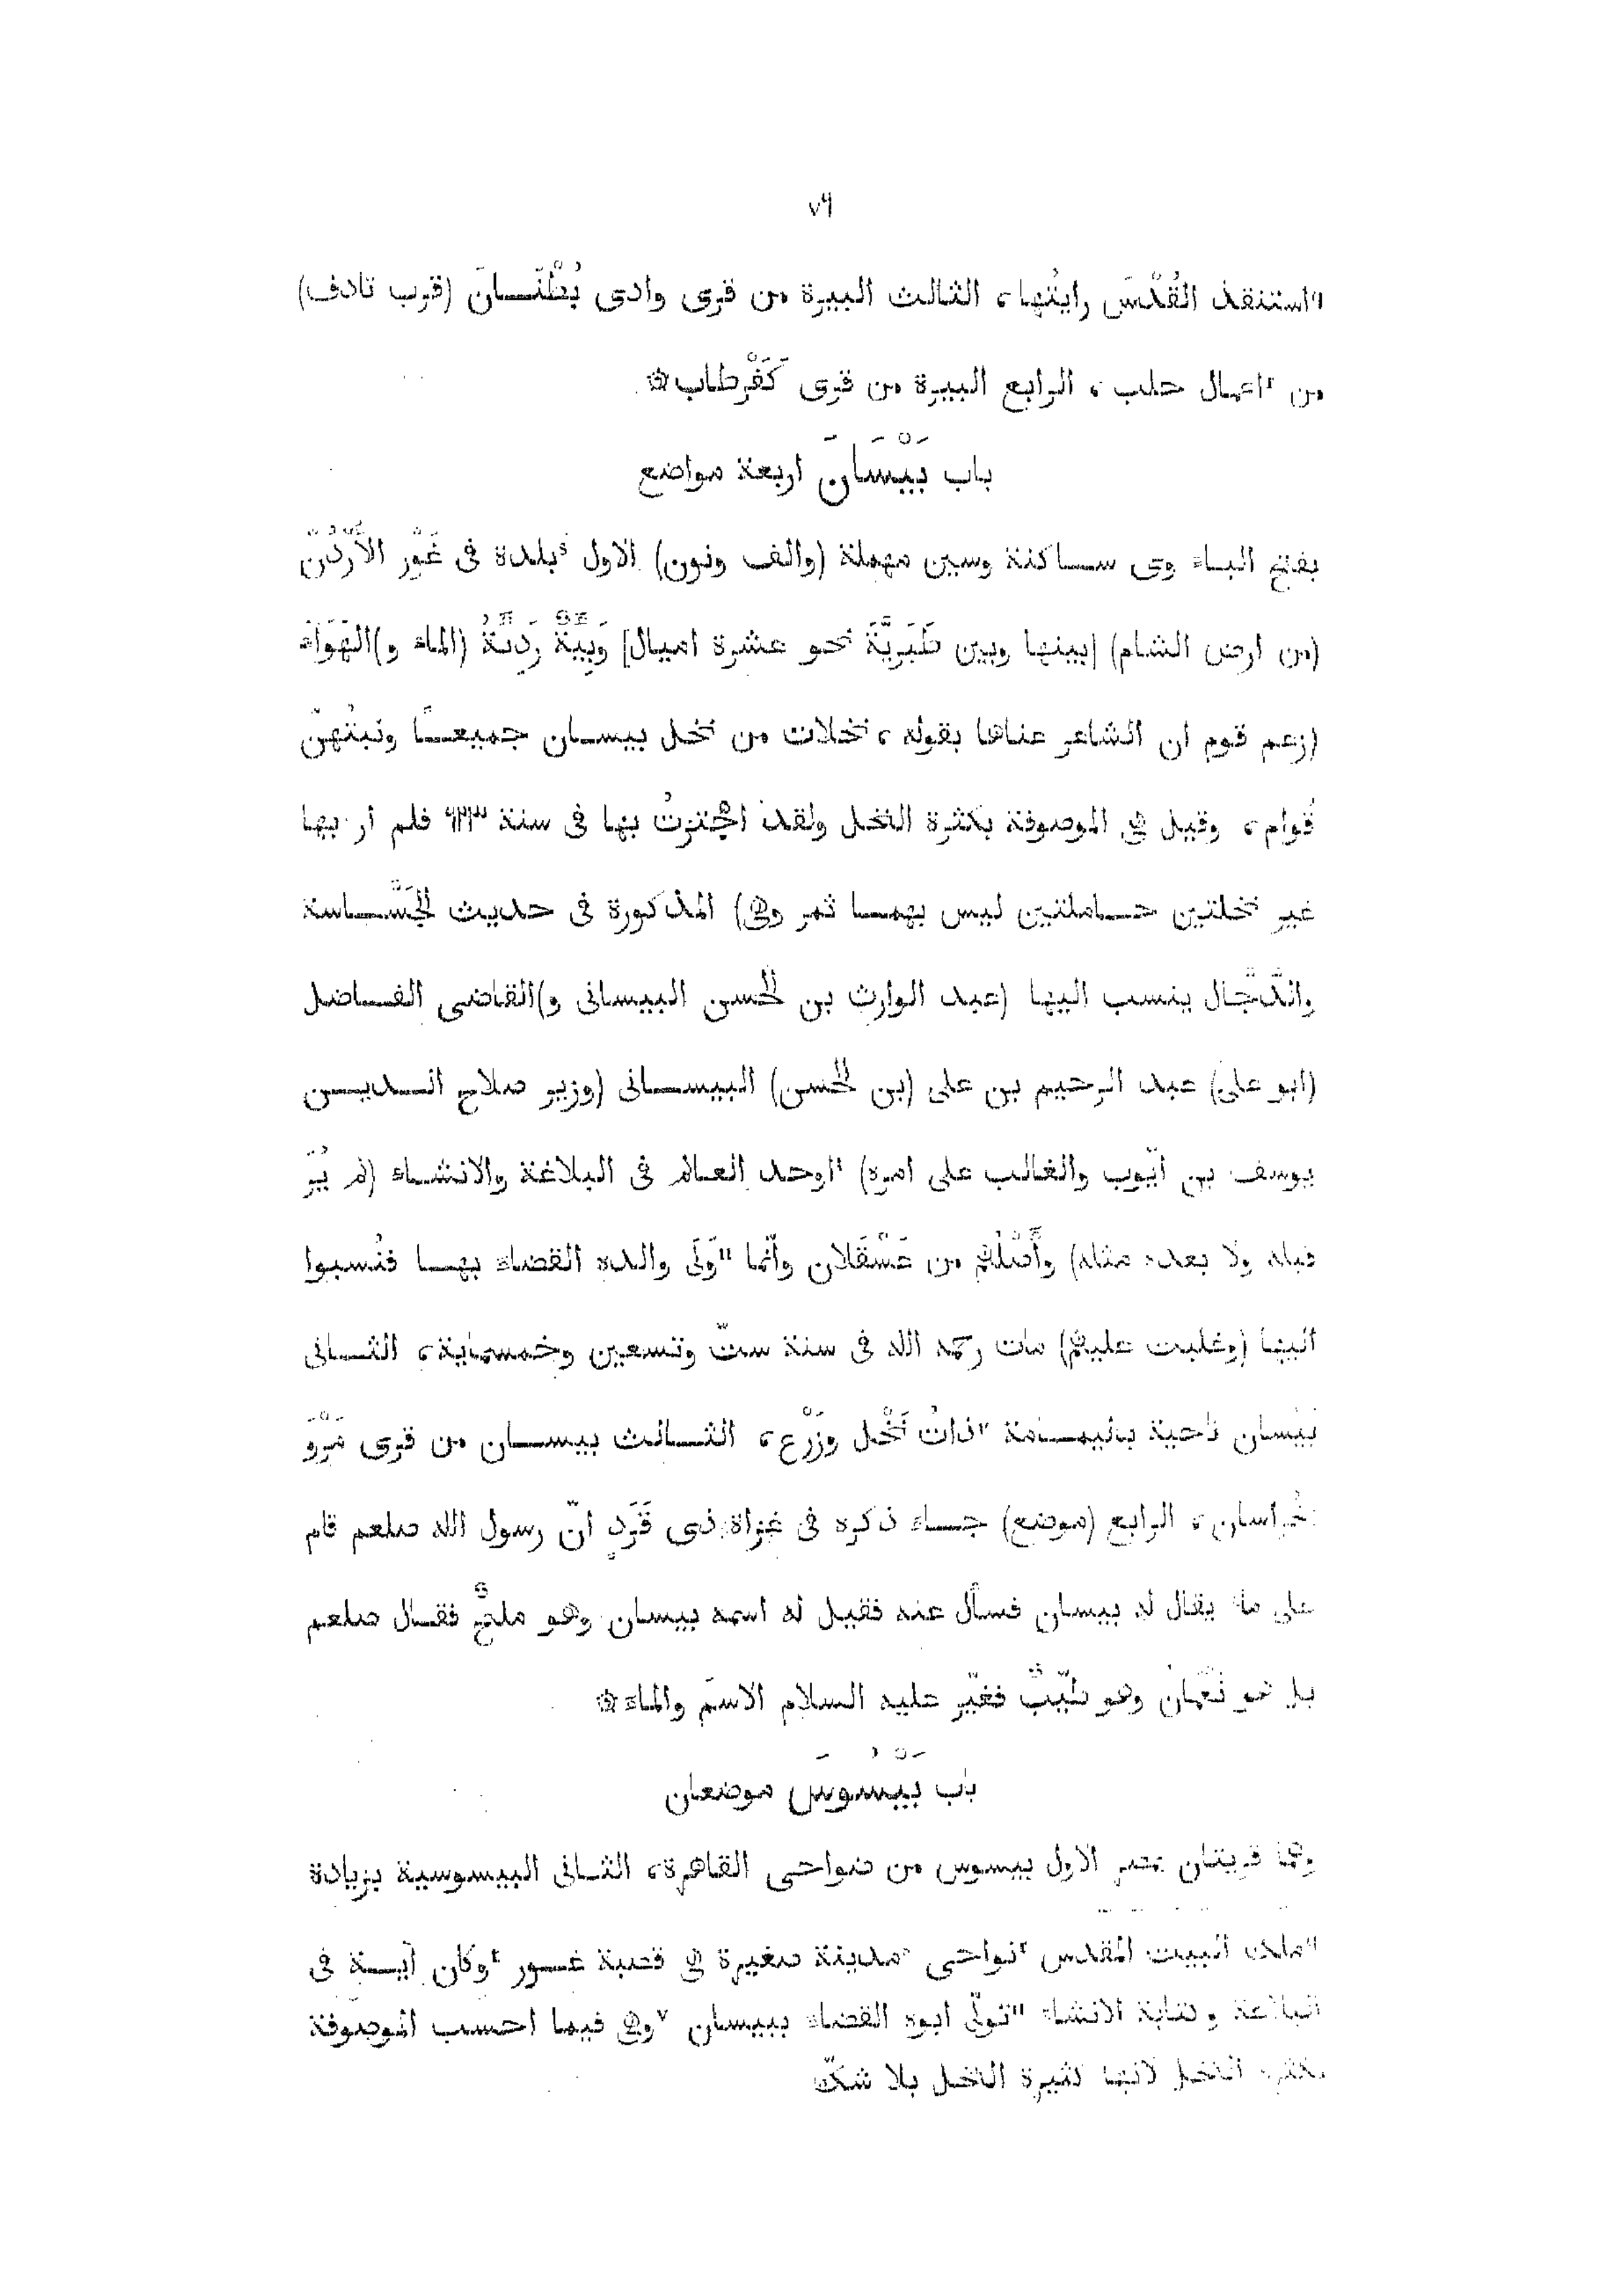 ٧٩
استنقذ القُدْسَ رايتُها، الثالث البيرة من قرى وادى بُطْنَان (قرب تادف)
من اعمال حلب، الرابع البيرة من قرى كَفَرْطاب ۞
باب بَيْسَانَ اربعة مواضع
بفتح الباء وى ساكنة وسين مهملة (والف ونون) الاول بلدة فى غَوْر الأُرْدُنّ
(من ارض الشام) [بينها وبين طَبَرِيَّةَ نحو عشرة اميال] وَبِيَّةٌ رَدِيَّةُ (الماء و)الهَوَاء
(زعم قوم ان الشاعر عناها بقوله، نخلات من نخل بيسان جميعًا ونبتُهنّ
تُوام، وقيل هى الموصوفة بكثرة النخل ولقد اجْتزتُ بها فى سنة ٦٢٣ فلم ار بها
غير نخلتين حاملتين ليس بهما تمر وهى) المذكورة فى حديث الجَسَّاسة
والدجّال ينسب اليها (عبد الوارث بن الحسن البيسانى و)القاضى الفاضل
(ابو على) عبد الرحيم بن على (بن الحسن) البيسانى (وزير صلاح الدين
يوسف بن ايّوب والغالب على امره) اوحد العالم فى البلاغة والانشاء (لم يُرَ
قبله ولا بعده مثله) وأَصْلُهم من عَسْقَلان وانّما وَلَى والده القضاء بها فنُسبوا
اليها (وغلبت عليهم) مات رحمه الله فى سنة ستّ وتسعين وخمسماية، الثانى
بيسان ناحية باليمامة ذاتُ نَخْل وزَرْع، الثالث بيسان من قرى مَرْو
خُراسان، الرابع (موضع) جاء ذكره فى غزاة ذى قَرَدٍ انّ رسول الله صلعم قام
على ماء يقال له بيسان فسأل عنه فقيل له اسمه بيسان وهو ملحٌ فقال صلعم
بل هو نَعْمان وهو طيّبٌ فغيّر عليه السلام الاسمَ والماءَ ۞
باب بَيْسُوسَ موضعان
وهما قريتان بمصر الاول بيسوس من ضواحى القاهرة، الثانى البيسوسية بزيادة
ملك البيت المقدس نواحى مدينة صغيرة هى قصبة غور وكان آية فى
البلاغة وكتابة الانشاء تولّى ابوه القضاء ببيسان ٧وهى فيما احسب الموصوفة
بكثرة النخل لانها كثيرة النخل بلا شكّ